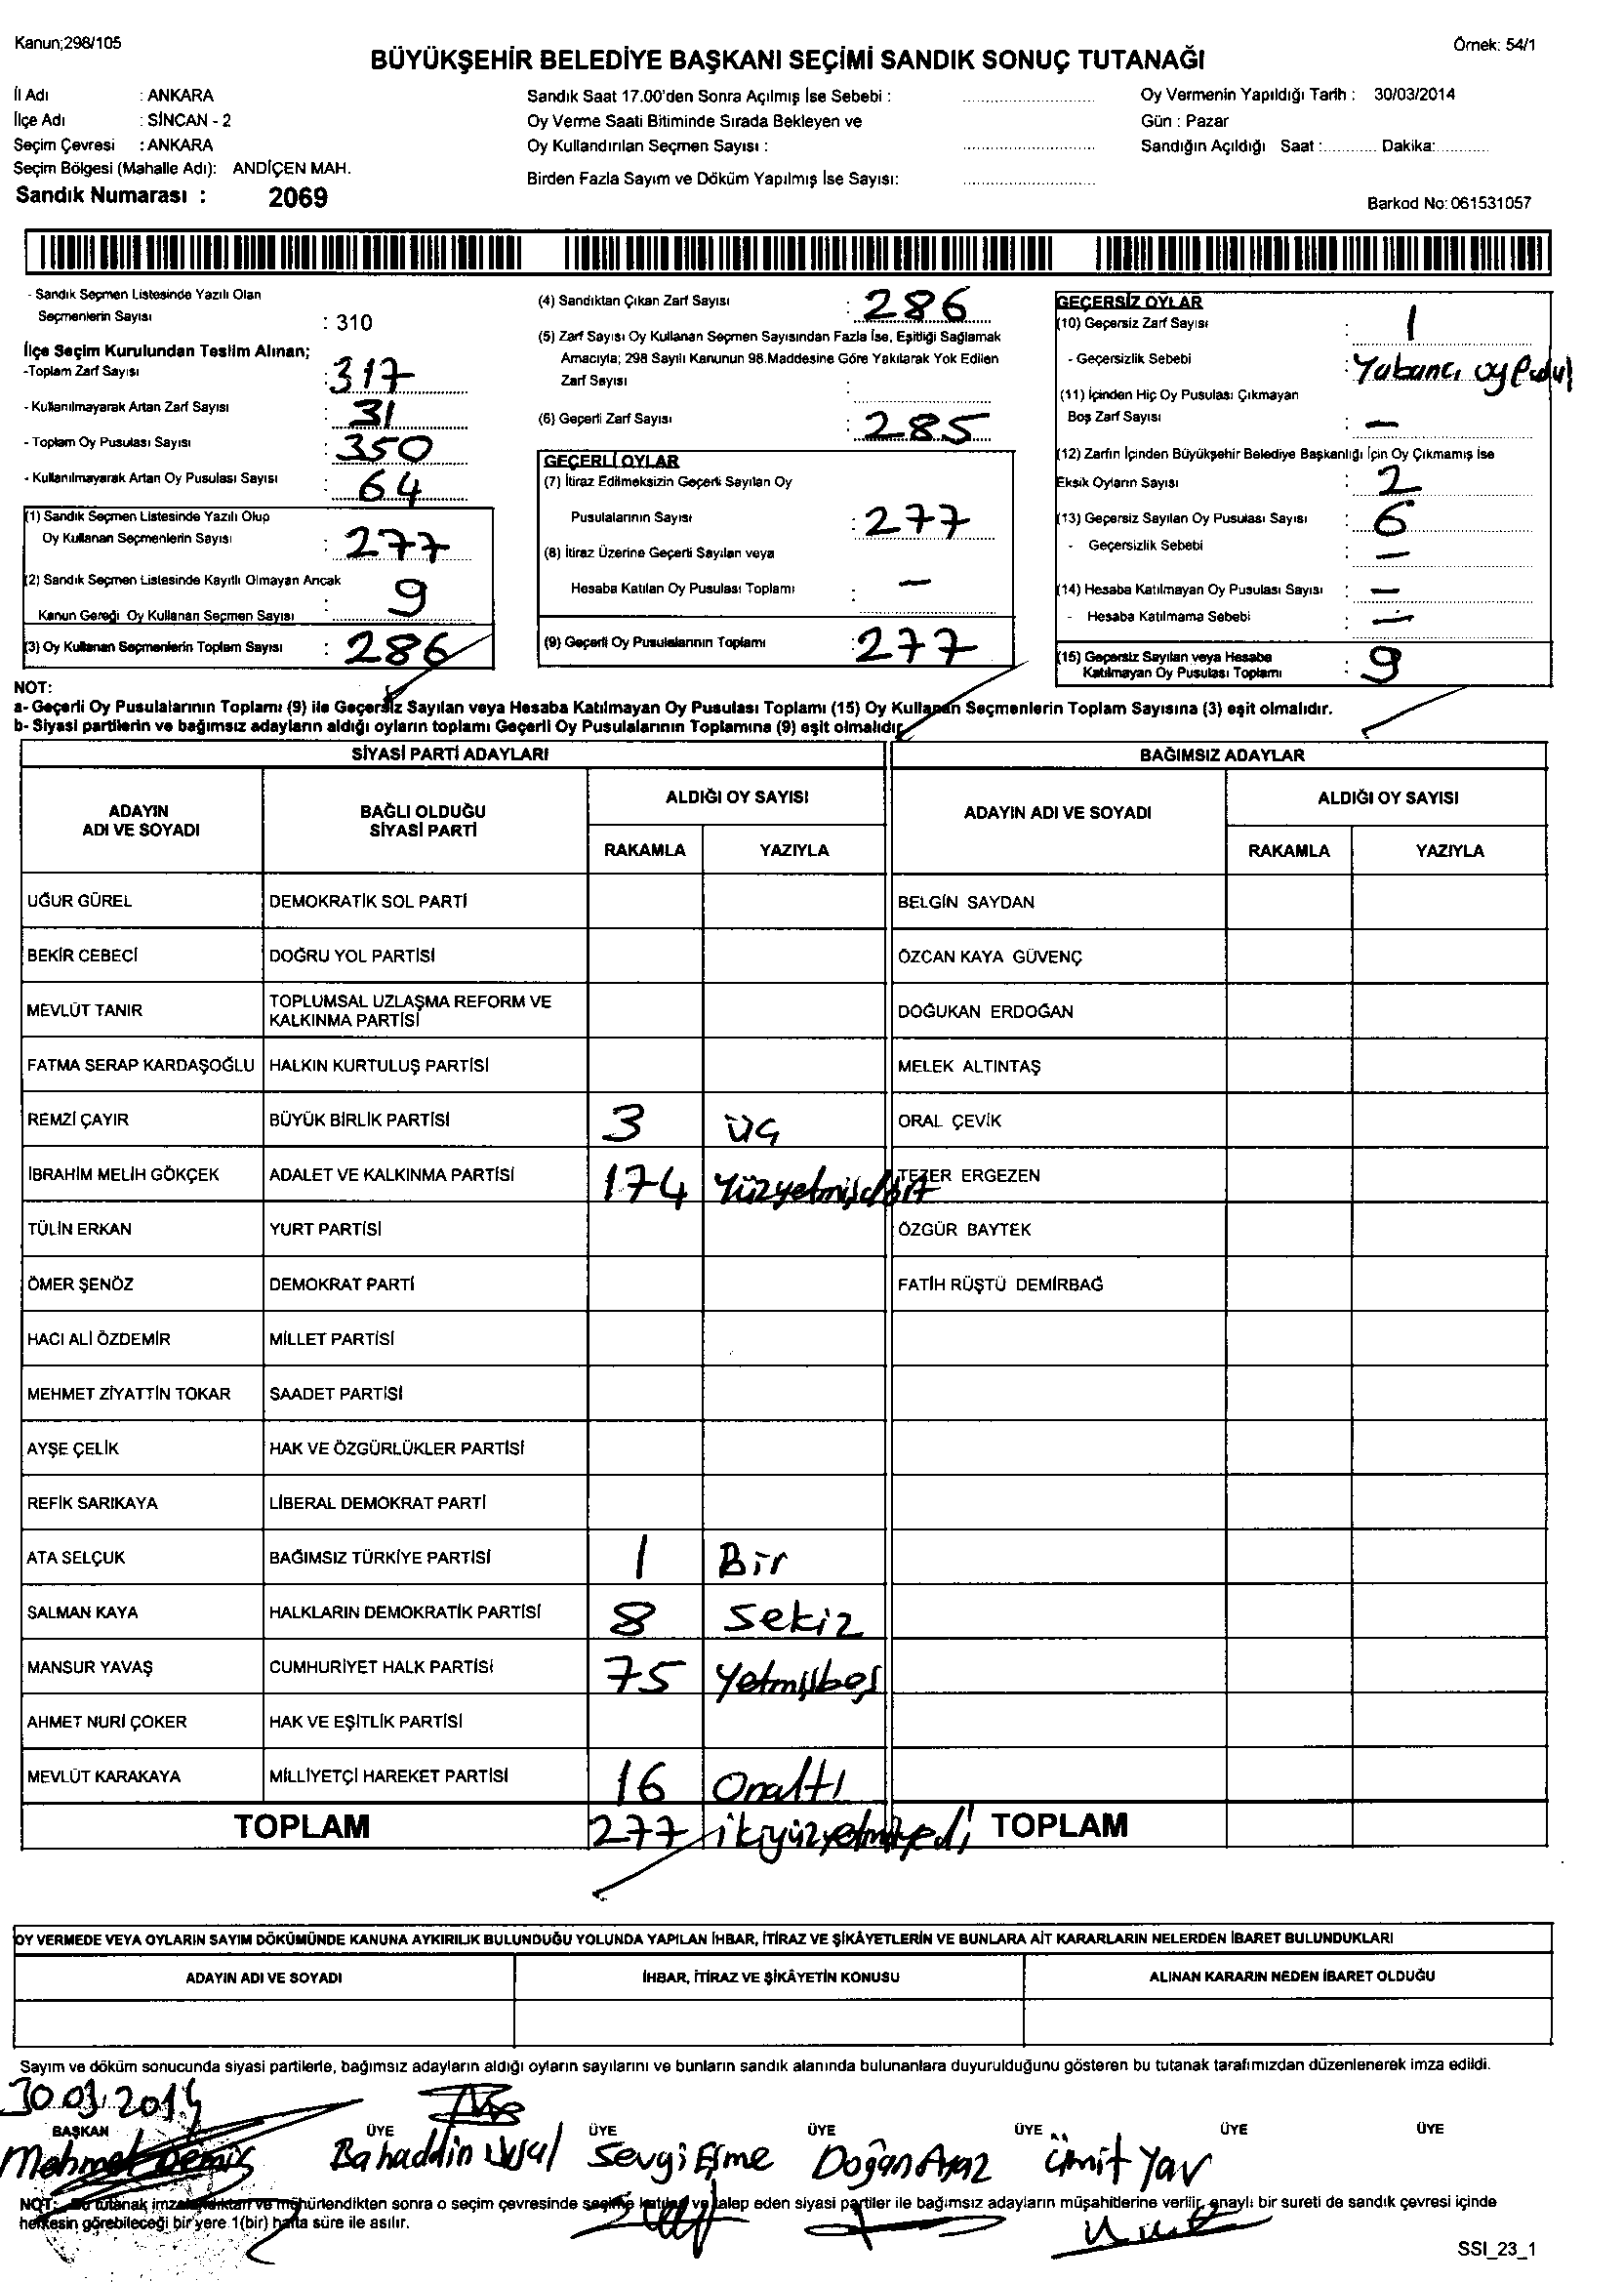 Kanun;298/105
Örnek: 54/1
BÜYÜKŞEHİR BELEDİYE BAŞKANI SEÇİMİ SANDIK SONUÇ TUTANAĞI
İl Adı : ANKARA
İlçe Adı : SİNCAN - 2
Seçim Çevresi : ANKARA
Seçim Bölgesi (Mahalle Adı): ANDİÇEN MAH.
Sandık Numarası : 2069
Sandık Saat 17.00'den Sonra Açılmış İse Sebebi :
Oy Verme Saati Bitiminde Sırada Bekleyen ve
Oy Kullandırılan Seçmen Sayısı :
Birden Fazla Sayım ve Döküm Yapılmış İse Sayısı:
Oy Vermenin Yapıldığı Tarih : 30/03/2014
Gün : Pazar
Sandığın Açıldığı Saat :............ Dakika:............
Barkod No: 061531057
- Sandık Seçmen Listesinde Yazılı Olan
Seçmenlerin Sayısı : 310
İlçe Seçim Kurulundan Teslim Alınan;
-Toplam Zarf Sayısı : 317
- Kullanılmayarak Artan Zarf Sayısı : 31
- Toplam Oy Pusulası Sayısı : 350
- Kullanılmayarak Artan Oy Pusulası Sayısı : 64
(1) Sandık Seçmen Listesinde Yazılı Olup
Oy Kullanan Seçmenlerin Sayısı : 277
(2) Sandık Seçmen Listesinde Kayıtlı Olmayan Ancak
Kanun Gereği Oy Kullanan Seçmen Sayısı : 9
(3) Oy Kullanan Seçmenlerin Toplam Sayısı : 286
(4) Sandıktan Çıkan Zarf Sayısı : 286
(5) Zarf Sayısı Oy Kullanan Seçmen Sayısından Fazla İse, Eşitliği Sağlamak
Amacıyla; 298 Sayılı Kanunun 98.Maddesine Göre Yakılarak Yok Edilen
Zarf Sayısı :
(6) Geçerli Zarf Sayısı : 285
GEÇERLİ OYLAR
(7) İtiraz Edilmeksizin Geçerli Sayılan Oy
Pusulalarının Sayısı : 277
(8) İtiraz Üzerine Geçerli Sayılan veya
Hesaba Katılan Oy Pusulası Toplamı : —
(9) Geçerli Oy Pusulalarının Toplamı : 277
GEÇERSİZ OYLAR
(10) Geçersiz Zarf Sayısı : 1
- Geçersizlik Sebebi : Yabancı oy Pusul
(11) İçinden Hiç Oy Pusulası Çıkmayan
Boş Zarf Sayısı : —
(12) Zarfın İçinden Büyükşehir Belediye Başkanlığı İçin Oy Çıkmamış İse
Eksik Oyların Sayısı : 2
(13) Geçersiz Sayılan Oy Pusulası Sayısı : 6
- Geçersizlik Sebebi : —
(14) Hesaba Katılmayan Oy Pusulası Sayısı : —
- Hesaba Katılmama Sebebi : —
(15) Geçersiz Sayılan veya Hesaba
Katılmayan Oy Pusulası Toplamı : 9
NOT:
a- Geçerli Oy Pusulalarının Toplamı (9) ile Geçersiz Sayılan veya Hesaba Katılmayan Oy Pusulası Toplamı (15) Oy Kullanan Seçmenlerin Toplam Sayısına (3) eşit olmalıdır.
b- Siyasi partilerin ve bağımsız adayların aldığı oyların toplamı Geçerli Oy Pusulalarının Toplamına (9) eşit olmalıdır.
SİYASİ PARTİ ADAYLARI
BAĞIMSIZ ADAYLAR
ADAYIN ADI VE SOYADI
BAĞLI OLDUĞU SİYASİ PARTİ
ALDIĞI OY SAYISI
RAKAMLA YAZIYLA
ADAYIN ADI VE SOYADI
ALDIĞI OY SAYISI
RAKAMLA YAZIYLA
UĞUR GÜREL DEMOKRATİK SOL PARTİ BELGİN SAYDAN
BEKİR CEBECİ DOĞRU YOL PARTİSİ ÖZCAN KAYA GÜVENÇ
MEVLÜT TANIR TOPLUMSAL UZLAŞMA REFORM VE KALKINMA PARTİSİ DOĞUKAN ERDOĞAN
FATMA SERAP KARDAŞOĞLU HALKIN KURTULUŞ PARTİSİ MELEK ALTINTAŞ
REMZİ ÇAYIR BÜYÜK BİRLİK PARTİSİ 3 üç ORAL ÇEVİK
İBRAHİM MELİH GÖKÇEK ADALET VE KALKINMA PARTİSİ 174 Yüzyetmişdört TEZER ERGEZEN
TÜLİN ERKAN YURT PARTİSİ ÖZGÜR BAYTEK
ÖMER ŞENÖZ DEMOKRAT PARTİ FATİH RÜŞTÜ DEMİRBAĞ
HACI ALİ ÖZDEMİR MİLLET PARTİSİ
MEHMET ZİYATTİN TOKAR SAADET PARTİSİ
AYŞE ÇELİK HAK VE ÖZGÜRLÜKLER PARTİSİ
REFİK SARIKAYA LİBERAL DEMOKRAT PARTİ
ATA SELÇUK BAĞIMSIZ TÜRKİYE PARTİSİ 1 Bir
SALMAN KAYA HALKLARIN DEMOKRATİK PARTİSİ 8 Sekiz
MANSUR YAVAŞ CUMHURİYET HALK PARTİSİ 75 Yetmişbeş
AHMET NURİ ÇOKER HAK VE EŞİTLİK PARTİSİ
MEVLÜT KARAKAYA MİLLİYETÇİ HAREKET PARTİSİ 16 Onaltı
TOPLAM 277 ikiyüzyetmişyedi TOPLAM
OY VERMEDE VEYA OYLARIN SAYIM DÖKÜMÜNDE KANUNA AYKIRILIK BULUNDUĞU YOLUNDA YAPILAN İHBAR, İTİRAZ VE ŞİKÂYETLERİN VE BUNLARA AİT KARARLARIN NELERDEN İBARET BULUNDUKLARI
ADAYIN ADI VE SOYADI İHBAR, İTİRAZ VE ŞİKÂYETİN KONUSU ALINAN KARARIN NEDEN İBARET OLDUĞU
Sayım ve döküm sonucunda siyasi partilerle, bağımsız adayların aldığı oyların sayılarını ve bunların sandık alanında bulunanlara duyurulduğunu gösteren bu tutanak tarafımızdan düzenlenerek imza edildi.
30.03.2014
BAŞKAN ÜYE ÜYE ÜYE ÜYE ÜYE ÜYE
Mehmet Demir Bahaddin Uysal Sevgi Eşme Doğan Ayaz Ümit Yav
NOT: Bu tutanak imzalandıktan ve mühürlendikten sonra o seçim çevresinde seçime katılan ve talep eden siyasi partiler ile bağımsız adayların müşahitlerine verilir, onaylı bir sureti de sandık çevresi içinde
herkesin görebileceği bir yere 1(bir) hafta süre ile asılır.
SSI_23_1